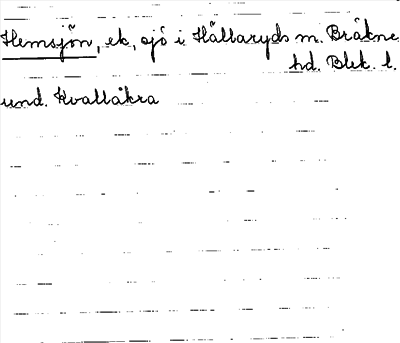 Hemsjön, ek, sjö i Hällaryds m. Bräkne
hd. Blek. l.
und. Kvallåkra